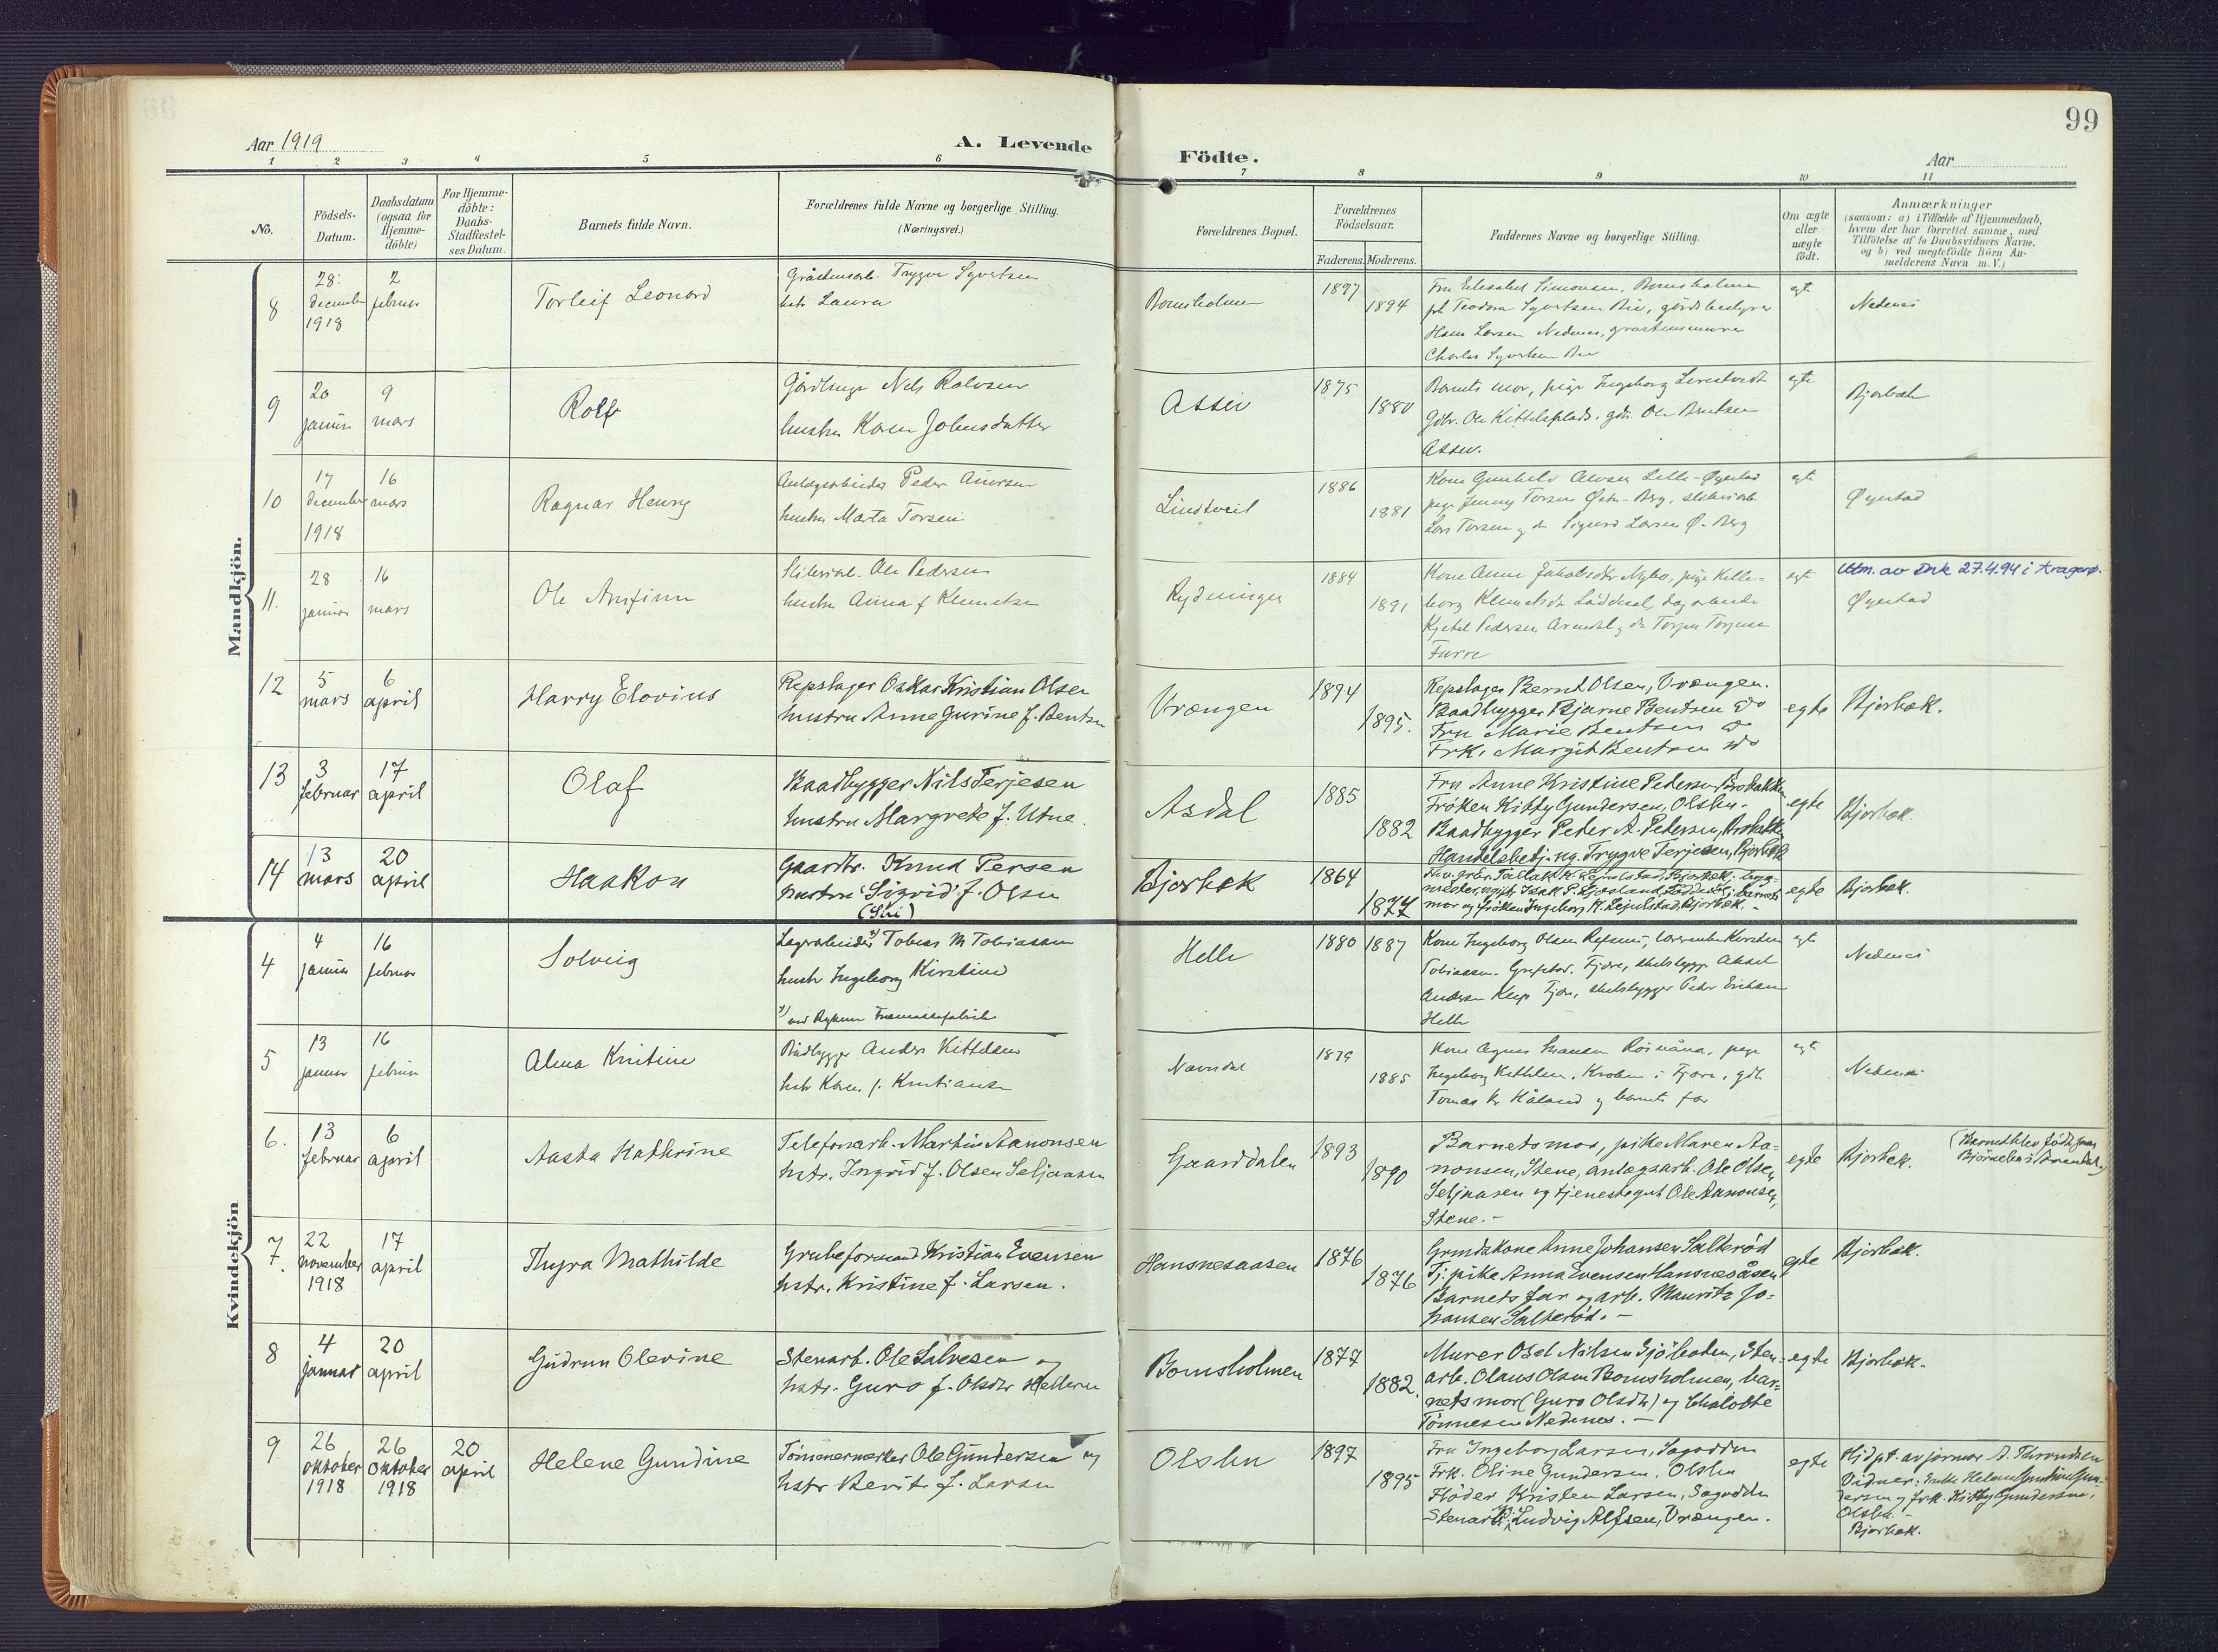 99
Aar 1919
A. Levende
Födte.
Aar
1 2 3 4 5 6 7 8 9 10 11
No.
Födsels-Datum.
Daabsdatum (ogsaa for Hjemme-döbte)
For Hjemme-döbte: Daabs-Stadfæstel-ses Datum.
Barnets fulde Navn.
Forældrenes fulde Navne og borgerlige Stilling. (Næringsvei.)
Forældrenes Bopæl.
Forældrenes Födselsaar.
Faderens. Moderens.
Faddernes Navne og borgerlige Stilling.
Om ægte eller uægte födt.
Anmærkninger
(saasom: a) i Tilfælde af Hjemmedaab,
hvem der har forrettet samme, med
Tilföielse af to Daabsvidners Navne,
og b) ved uægtefödte Börn An-
melderens Navn m. V.)
Mandkjön.
8
28. december 1918
2 februar
Torleif Leonard
Trygve Syvertsen
hstr Laura
Bomsholmen
1897
1894
Fru Elisabet Simonsen, Bomsholmen
frk Teodora Syvertsen Bie, gårdsbestyrer
Hans Larsen Nedenes, gråstensmurer
Charles Syvertsen Bie
egte
Nedenes
9
20 januar
9 mars
Rolf
Nils Rolvsen
hustru Karen Johnsdatter
Assev
1875
1880
Barnets mor, pige Ingeborg
Gdbr. Ole Kittelsplads, gdbr. Ole Bentsen
Assev.
egte
Bjorbæk
10
17 december 1918
16 mars
Ragnar Henry
Anlægsarbeider Peder
hustru Marta Torsen
Lindtveit
1886
1881
Kone Gunhild Lille-Øyestad
pige Jenny Torsen Østre-Berg,
Lars Torsen og do Sigurd Larsen Ø. Berg
egte
Øyestad
11.
28 januar
16 mars
Ole Arnfinn
Sliberiarb. Ole Pedersen
hustru Anna f Klemetsen
Rydningen
1884
1891
Kone Anne Jakobsdtr Nybo, pige
Løddesøl, dagarbeider
Kjetil Pedersen Arendal og do Torjus Torjussen
Furre
egte
Utm. av Dnk 27.4.94 i Kragerø.
Øyestad
12
5 mars
6 april
Harry Elovius
Repslager Oskar Kristian Olsen
hustru Anne Gurine f. Bentsen
Vrængen
1894
1895.
Repslager Bernt Olsen, Vrængen.
Baadbygger Bjarne Bentsen do
Fru Marie Bentsen do
Frk. Margit Bentsen do
egte
Bjorbæk.
13
3 februar
17 april
Olaf
Baadbygger Nils Terjesen
hustru Margrete f. Utne.
Asdal
1885
1882
Fru Anne Kristine Pedersen Brobakken
Frøken Kitty Gundersen, Olsbu.
Baadbygger Peder A. Pedersen, Brobakken
Handelsbetj. og. Trygve Terjesen, Bjorbæk
egte
Bjorbæk.
14
13 mars
20 april
Haakon
Gaardbr. Knud Persen
hustru "Sigrid" f. Olsen
(Siri)
Bjorbæk
1864
1877
mor og frøken Ingeborg K. Bjorbæk.
egte
Bjorbæk.
Kvindekjön
4
4 januar
16 februar
Solveig
Lagerarbeider x) Tobias M Tobiassen
hustr Ingeborg Kirstine
x) ved Rykene Træmassefabrik
Helle
1880 1887
Kone Ingeborg Olsen
Tobiassen. Fjære, skibsbygger Aksel
Andersen Fjære, skibsbygger Peder Eriksen
Helle
egte
Nedenes
5
13 januar
16 februar
Alma Kristine
Båtbygger Anders Kittelsen
hstr Karen f. Kristiansen
Navnsdal
1879
1885
Kone Agnes Hansen pige
Ingeborg Kittelsen, i Fjære, gdbr
Tomas Kr Håland og barnets far
egte
Nedenes
6.
13 februar
6 april
Aasta Kathrine
Telefonarb. Martin Aanonsen
hstr. Ingrid f. Olsen Seljaasen
Gaarddalen
1893
1890
Barnets mor, pike Maren Aa-
nonsen, Stene, anlegsarb. Ole Olsen,
Seljaasen og tjenestegut Ole Aanonsen,
Stene.-
egte
Bjorbæk.
(Barnet blev født paa
i Arendal.)
7.
22 november 1918
17 april
Thyra Mathilde
Grubeformand Kristian Evensen
hstr. Kristine f. Larsen.
Hansnesaasen
1876
1876
Grindakone Anne Johansen Salterød
Tj. pike Anna Evensen Hansnesåsen
Barnets far og arb. Mauritz Jo-
hansen Salterød.-
egte
Bjorbæk.
8
4 januar
20 april
Gudrun Olevine
Stenarb. Ole Salvesen og
hstr. Guro f. Olsdtr Helleren
Bomsholmen
1877
1882.
Murer Osel Nilsen Sjøboden, Sten-
arb. Olaus Olsen Bomsholmen, bar-
nets mor (Guro Olsdtr) og Charlotte
Tønnesen Nedenes.-
egte
Bjorbæk.
9
26 oktober 1918
26 oktober 1918
20 april
Helene Gundine
Tømmermerker Ole Gundersen og
hstr Berit f. Larsen
Olsbu
1897
1895
Fru Ingeborg Larsen, Sagodden
Frk. Oline Gundersen, Olsbu
Fløder Kristen Larsen, Sagodden
Stenarb. Ludvig Alfsen, Vrængen.
egte
Hjdpt. av jormor A. Throndsen
Vidner: Enke Helene Gundine Gun-
dersen og frk. Kitty Gundersen,
Olsbu.-
Bjorbæk.